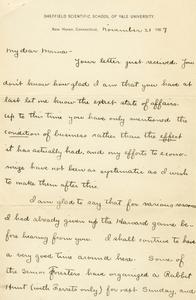 SHEFFIELD SCIENTIFIC SCHOOL OF YALE UNIVERSITY
New Haven, Connecticut, November 21 1907
My dear Mama:-
Your letter just received. You
don't know how glad I am that you have at
last let me know the exact state of affairs.
Up to this time you have only mentioned the
condition of business rather than the effect
it has actually had, and my efforts to econo-
mize have not been as systematic as I wish
to make them after this.
I am glad to say that for various reasons
I had already given up the Harvard game be-
fore hearing from you. I shall continue to have
a very good time around here. Some of
the Senior Foresters have organized a Rabbit
Hunt (with Ferrets only) for next Sunday, and